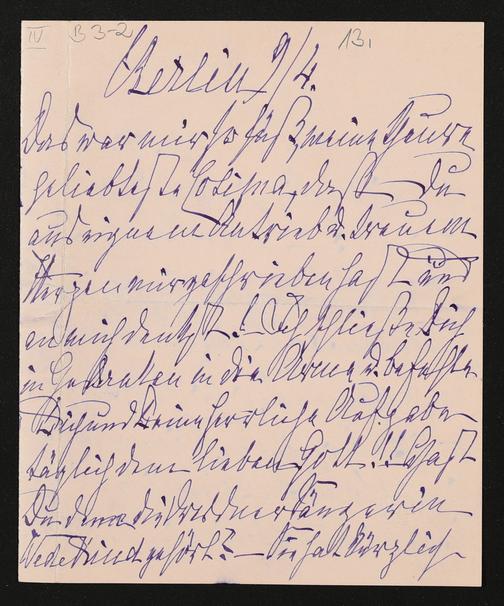 IV B 3-2 13.
Berlin 9/4.
Das war mir so süß, meine theure
geliebteste Cosima, daß Du
aus eignem Antrieb u. treuem
Herzen mir geschrieben hast und
an mich denkst! Ich schließe Dich
in Gedanken in die Arme u. befehle
Dich und Deine herrliche Aufgabe
täglich dem lieben Gott!! Hast
Du denn die Dresdner Sängerin
Wedekind gehört? – Sie hat kürzlich